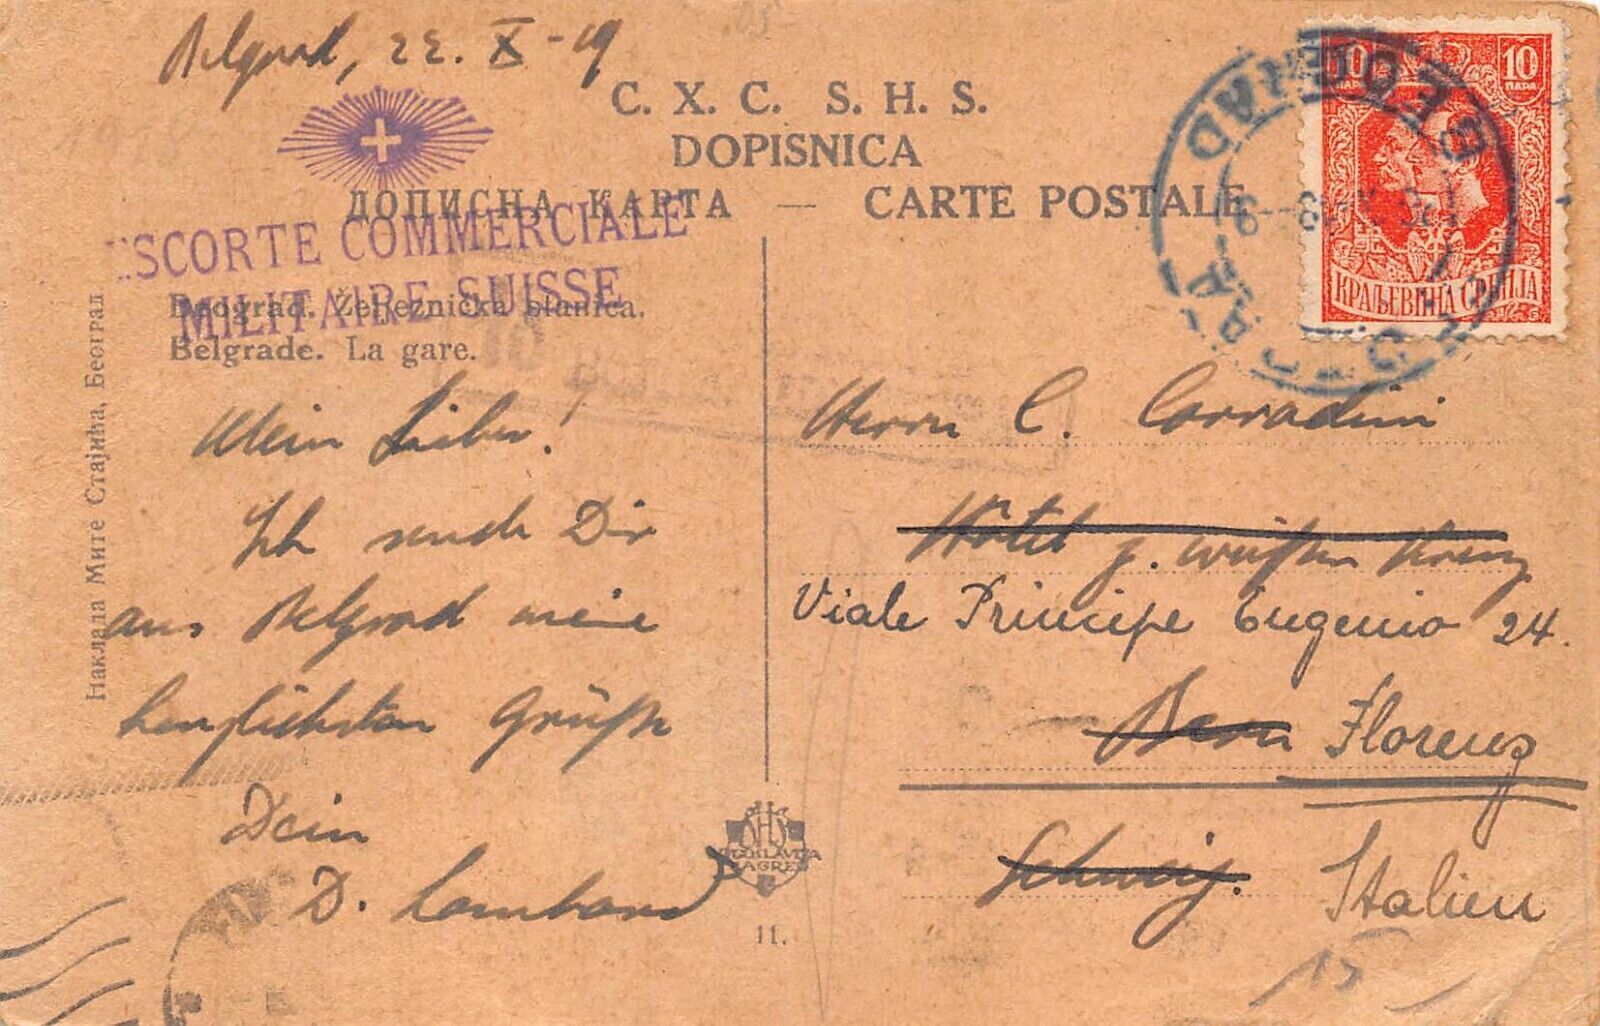 Belgrad, 22. X - 19
C. X. C. S. H. S.
DOPISNICA
ДОПИСНА КАРТА — CARTE POSTALE
ESCORTE COMMERCIALE
MILITAIRE SUISSE
Beograd. Željeznička stanica.
Belgrade. La gare.
Наклада Мите Стајића, Београд.
Mein Lieber!
Ich sende Dir
aus Belgrad meine
herzlichsten Grüße
Dein
D. Lombard
10 10
ПАРА ПАРА
КРАЉЕВИНА СРБИЈА
БЕОГРАД
BEOGRAD
Herrn C. Corradini
Hôtel z. weißen Kreuz
Viale Principe Eugenio 24.
Bern Florenz
Schweiz. Italien
JUGOSLAVIJA
ZAGREB
11.
15